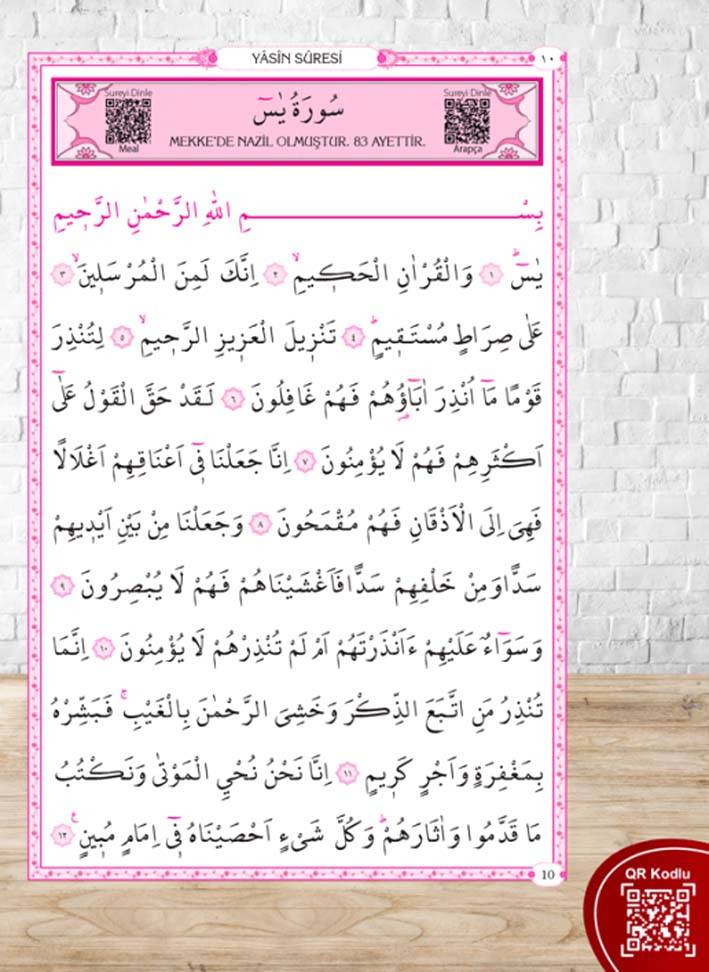 YÂSÎN SÛRESİ
١٠
Sureyi Dinle
Meal
سُورَةُ يٰسٓ
MEKKE'DE NAZİL OLMUŞTUR. 83 AYETTİR.
Sureyi Dinle
Arapça
بِسْمِ اللهِ الرَّحْمٰنِ الرَّح۪يمِ
يٰسٓۜ ﴿١﴾ وَالْقُرْاٰنِ الْحَك۪يمِۙ ﴿٢﴾ اِنَّكَ لَمِنَ الْمُرْسَل۪ينَۙ ﴿٣﴾
عَلٰى صِرَاطٍ مُسْتَق۪يمٍۜ ﴿٤﴾ تَنْز۪يلَ الْعَز۪يزِ الرَّح۪يمِۙ ﴿٥﴾ لِتُنْذِرَ
قَوْمًا مَٓا اُنْذِرَ اٰبَٓاؤُ۬هُمْ فَهُمْ غَافِلُونَ ﴿٦﴾ لَقَدْ حَقَّ الْقَوْلُ عَلٰٓى
اَكْثَرِهِمْ فَهُمْ لَا يُؤْمِنُونَ ﴿٧﴾ اِنَّا جَعَلْنَا ف۪ٓي اَعْنَاقِهِمْ اَغْلَالًا
فَهِيَ اِلَى الْاَذْقَانِ فَهُمْ مُقْمَحُونَ ﴿٨﴾ وَجَعَلْنَا مِنْ بَيْنِ اَيْد۪يهِمْ
سَدًّا وَمِنْ خَلْفِهِمْ سَدًّا فَاَغْشَيْنَاهُمْ فَهُمْ لَا يُبْصِرُونَ ﴿٩﴾
وَسَوَٓاءٌ عَلَيْهِمْ ءَاَنْذَرْتَهُمْ اَمْ لَمْ تُنْذِرْهُمْ لَا يُؤْمِنُونَ ﴿١٠﴾ اِنَّمَا
تُنْذِرُ مَنِ اتَّبَعَ الذِّكْرَ وَخَشِيَ الرَّحْمٰنَ بِالْغَيْبِۚ فَبَشِّرْهُ
بِمَغْفِرَةٍ وَاَجْرٍ كَر۪يمٍ ﴿١١﴾ اِنَّا نَحْنُ نُحْيِ الْمَوْتٰى وَنَكْتُبُ
مَا قَدَّمُوا وَاٰثَارَهُمْۜ وَكُلَّ شَيْءٍ اَحْصَيْنَاهُ ف۪ٓي اِمَامٍ مُب۪ينٍۚ ﴿١٢﴾
10
QR Kodlu